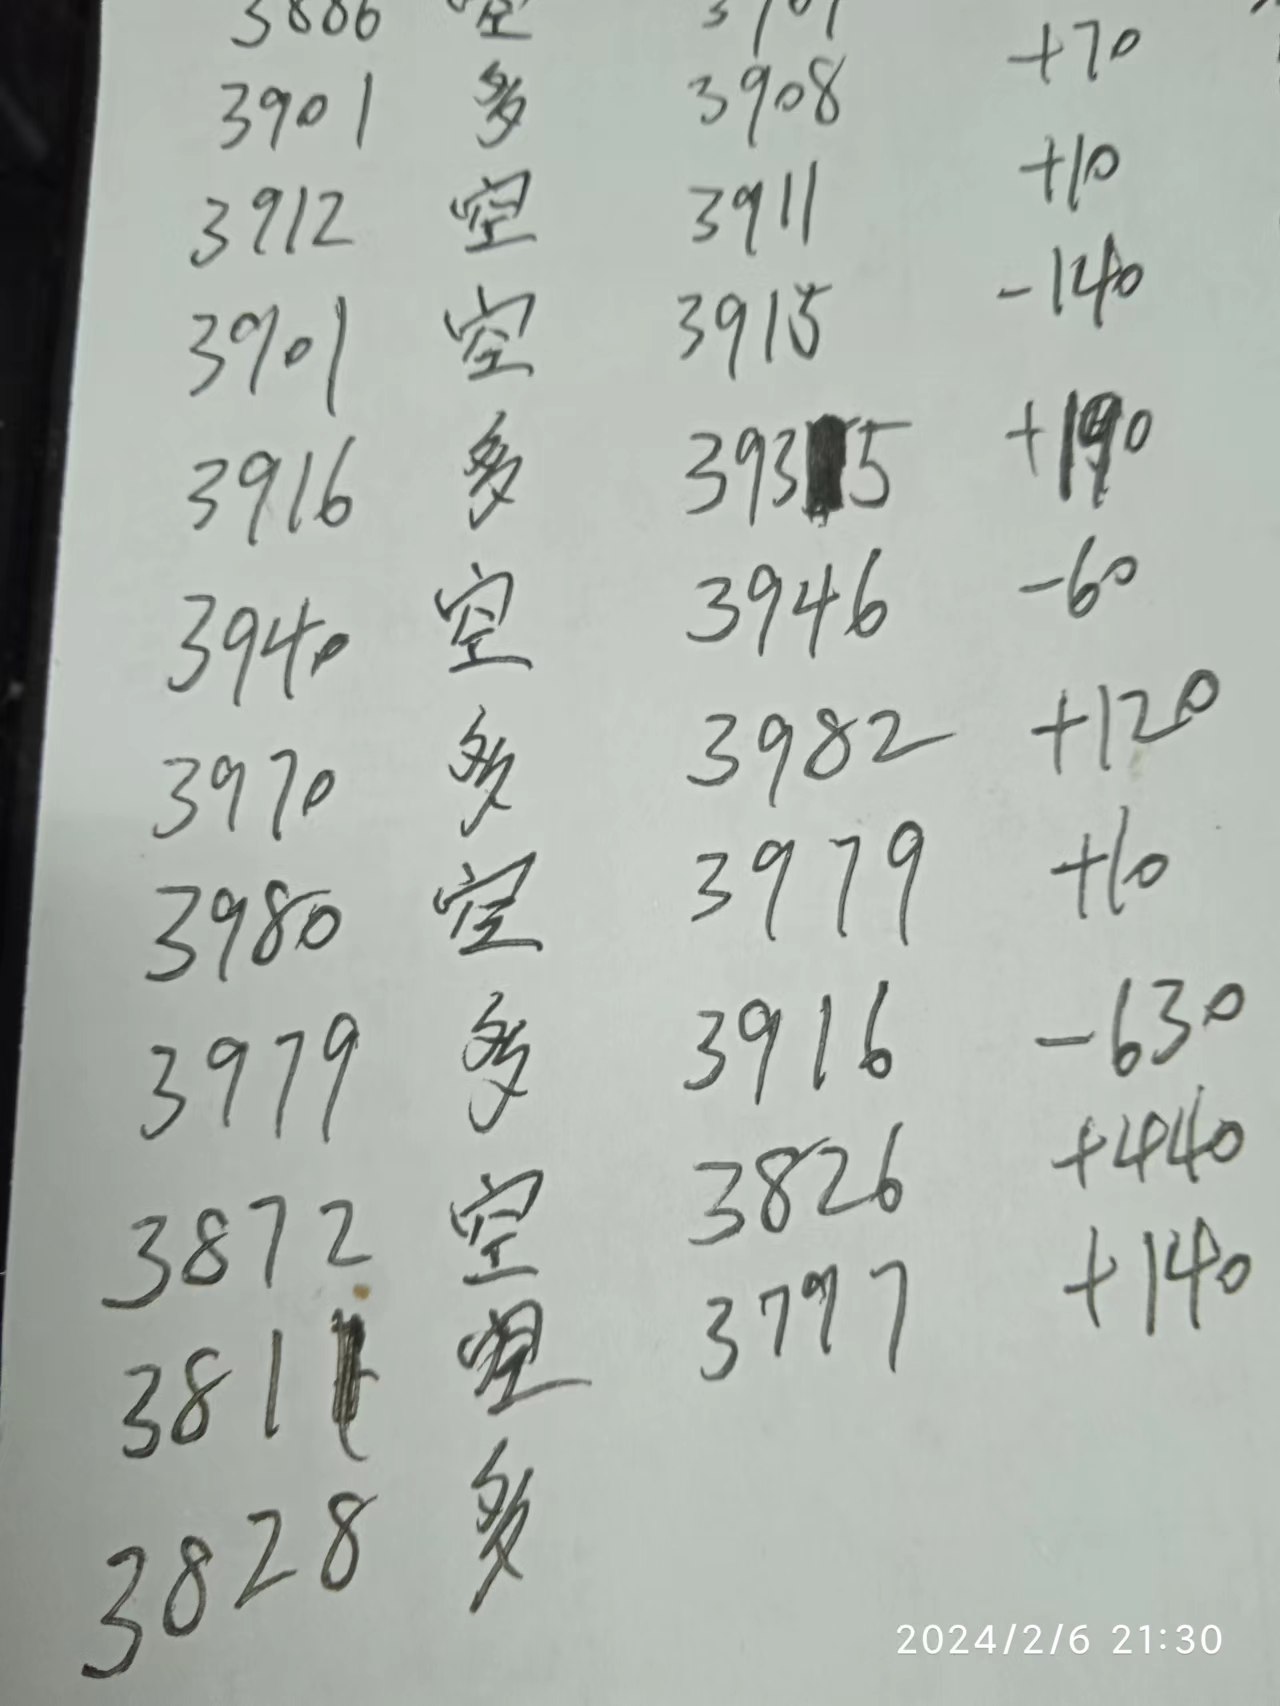 3886 空 3901
3901 多 3908 +70
3912 空 3911 +10
3901 空 3915 -140
3916 多 3935 +190
3940 空 3946 -60
3970 多 3982 +120
3980 空 3979 +10
3979 多 3916 -630
3872 空 3826 +440
3811 空 3797 +140
3828 多
2024/2/6 21:30